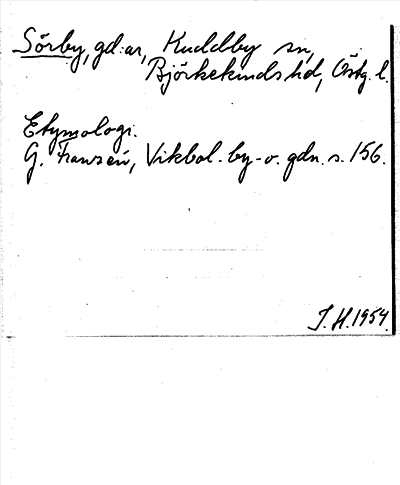 Sörby, gd:ar, Kuddby sn,
Björkekinds hd, Östg. l.
Etymologi.
G. Franzén, Vikbol. by- o. gdn. s. 156.
J. H. 1954.